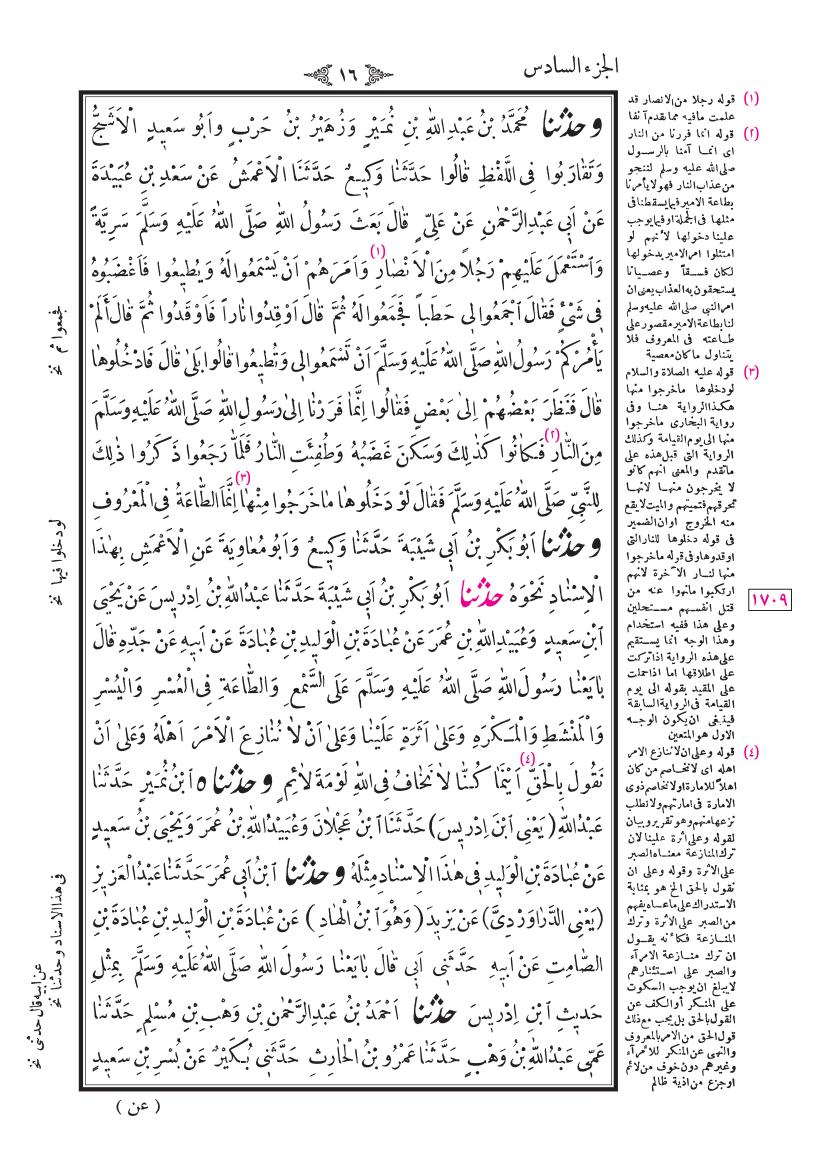 الجزء السادس
١٦
وحدثنا مُحَمَّدُ بْنُ عَبْدِاللهِ بْنِ نُمَيْرٍ وَزُهَيْرُ بْنُ حَرْبٍ وَاَبُو سَعيدٍ الْاَشَجُّ
وَتَقَارَبُوا فِى اللَّفْظِ قَالُوا حَدَّثَنَا وَكيعٌ حَدَّثَنَا الْاَعْمَشُ عَنْ سَعْدِ بْنِ عُبَيْدَةَ
عَنْ اَبى عَبْدِالرَّحْمٰنِ عَنْ عَلِىٍّ قَالَ بَعَثَ رَسُولُ اللهِ صَلَّى اللهُ عَلَيْهِ وَسَلَّمَ سَرِيَّةً
وَاسْتَعْمَلَ عَلَيْهِمْ رَجُلاً مِنَ الْاَنْصَارِ (١) وَاَمَرَهُمْ اَنْ يَسْمَعُوا لَهُ وَيُطيعُوا فَاَغْضَبُوهُ
فى شَىْءٍ فَقَالَ اجْمَعُوا لى حَطَباً فَجَمَعُوا لَهُ ثُمَّ قَالَ اَوْقِدُوا نَاراً فَاَوْقَدُوا ثُمَّ قَالَ أَلَمْ
يَأْمُرْكُمْ رَسُولُ اللهِ صَلَّى اللهُ عَلَيْهِ وَسَلَّمَ اَنْ تَسْمَعُوا لى وَتُطيعُوا قَالُوا بَلىٰ قَالَ فَادْخُلُوهَا
قَالَ فَنَظَرَ بَعْضُهُمْ اِلىٰ بَعْضٍ فَقَالُوا اِنَّمَا فَرَرْنَا اِلىٰ رَسُولِ اللهِ صَلَّى اللهُ عَلَيْهِ وَسَلَّمَ
مِنَ النَّارِ (٢) فَكَانُوا كَذٰلِكَ وَسَكَنَ غَضَبُهُ وَطُفِئَتِ النَّارُ فَلَمَّا رَجَعُوا ذَكَرُوا ذٰلِكَ
لِلنَّبِىِّ صَلَّى اللهُ عَلَيْهِ وَسَلَّمَ فَقَالَ لَوْ دَخَلُوهَا مَا خَرَجُوا مِنْهَا (٣) اِنَّمَا الطَّاعَةُ فِى الْمَعْرُوفِ
وحدثنا اَبُو بَكْرِ بْنُ اَبى شَيْبَةَ حَدَّثَنَا وَكيعٌ وَاَبُو مُعَاوِيَةَ عَنِ الْاَعْمَشِ بِهٰذَا
الْاِسْنَادِ نَحْوَهُ حدثنا اَبُو بَكْرِ بْنُ اَبى شَيْبَةَ حَدَّثَنَا عَبْدُاللهِ بْنُ اِدْريسَ عَنْ يَحْيَى
ابْنِ سَعيدٍ وَعُبَيْدِاللهِ بْنِ عُمَرَ عَنْ عُبَادَةَ بْنِ الْوَليدِ بْنِ عُبَادَةَ عَنْ اَبيهِ عَنْ جَدِّهِ قَالَ
بَايَعْنَا رَسُولَ اللهِ صَلَّى اللهُ عَلَيْهِ وَسَلَّمَ عَلَى السَّمْعِ وَالطَّاعَةِ فِى الْعُسْرِ وَالْيُسْرِ
وَالْمَنْشَطِ وَالْمَكْرَهِ وَعَلىٰ اَثَرَةٍ عَلَيْنَا وَعَلىٰ اَنْ لَا نُنَازِعَ الْاَمْرَ اَهْلَهُ وَعَلىٰ اَنْ
نَقُولَ بِالْحَقِّ (٤) اَيْنَمَا كُنَّا لَا نَخَافُ فِى اللهِ لَوْمَةَ لَائِمٍ وحدثناه ابْنُ نُمَيْرٍ حَدَّثَنَا
عَبْدُاللهِ (يَعْنِى ابْنَ اِدْريسَ) حَدَّثَنَا ابْنُ عَجْلَانَ وَعُبَيْدُاللهِ بْنُ عُمَرَ وَيَحْيَى بْنُ سَعيدٍ
عَنْ عُبَادَةَ بْنِ الْوَليدِ فى هٰذَا الْاِسْنَادِ مِثْلَهُ وحدثنا ابْنُ اَبى عُمَرَ حَدَّثَنَا عَبْدُ الْعَزيزِ
(يَعْنِى الدَّرَاوَرْدِىَّ) عَنْ يَزيدَ (وَهُوَ ابْنُ الْهَادِ) عَنْ عُبَادَةَ بْنِ الْوَليدِ بْنِ عُبَادَةَ بْنِ
الصَّامِتِ عَنْ اَبيهِ حَدَّثَنى اَبى قَالَ بَايَعْنَا رَسُولَ اللهِ صَلَّى اللهُ عَلَيْهِ وَسَلَّمَ بِمِثْلِ
حَديثِ ابْنِ اِدْريسَ حدثنا اَحْمَدُ بْنُ عَبْدِالرَّحْمٰنِ بْنِ وَهْبِ بْنِ مُسْلِمٍ حَدَّثَنَا
عَمّى عَبْدُاللهِ بْنُ وَهْبٍ حَدَّثَنَا عَمْرُو بْنُ الْحَارِثِ حَدَّثَنى بُكَيْرٌ عَنْ بُسْرِ بْنِ سَعيدٍ
( عن )
(١) قوله رجلا من الانصار قد
علمت مافيه مما تقدم آنفا
(٢) قوله انما فررنا من النار
اى انما آمنا بالرسول
صلى الله عليه وسلم لننجو
من عذاب النار فهو لا يأمرنا
بطاعة الامير فيما يسقطنا فى
مثلها فى الجملة او فيما يوجب
علينا دخولها لأنهم لو
امتثلوا امر الامير بدخولها
لكان فسقاً وعصيانا
يستحقون به العذاب يعنى ان
امر النبى صلى الله عليه وسلم
لنا بطاعة الامير مقصور على
طاعته فى المعروف فلا
يتناول ما كان معصية
(٣) قوله عليه الصلاة والسلام
لو دخلوها ماخرجوا منها
هكذا الرواية هنا وفى
رواية البخارى ماخرجوا
منها الى يوم القيامة وكذلك
الرواية التى قبل هذه على
ماتقدم والمعنى انهم كانو
لا يخرجون منها لانها
تحرقهم فتميتهم والميت لا يقع
منه الخروج او ان الضمير
فى قوله دخلوها للنار التى
اوقدوها وفى قوله ماخرجوا
منها لنار الآخرة لانهم
ارتكبوا مانهوا عنه من
قتل انفسهم مستحلين
وعلى هذا ففيه استخدام
وهذا الوجه انما يستقيم
على هذه الرواية اذا تركت
على اطلاقها اما اذا حملت
على المقيد بقوله الى يوم
القيامة فى الرواية السابقة
فينبغى ان يكون الوجه
الاول هو المتعين
١٧٠٩
(٤) قوله وعلى ان لا ننازع الامر
اهله اى لا نخاصم من كان
اهلاً للامارة او لا نخاصم ذوى
الامارة فى امارتهم ولا نطلب
نزعها منهم وهو تقرير وبيان
لقوله وعلى اثرة علينا لان
ترك المنازعة معناه الصبر
على الاثرة وقوله وعلى ان
نقول بالحق الخ هو بمثابة
الاستدراك على ما عساه يفهم
من الصبر على الاثرة وترك
المنازعة فكأنه يقول
ان ترك منازعة الامرآء
والصبر على استئثارهم
لايبلغ ان يوجب السكوت
على المنكر أو الكف عن
القول بالحق بل يجب مع ذلك
قول الحق من الامر بالمعروف
والنهى عن المنكر للأمرآء
وغيرهم دون خوف من لائم
او جزع من اذية ظالم
فجمعوا ثم نخ
لو دخلوا فيها نخ
فى هذا الاسناد وحدثنا نخ
عن ابيه قال حدثنى نخ